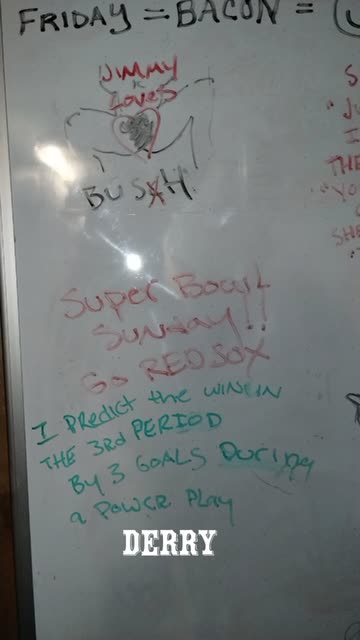 FRIDAY = BACON =
JIMMY
LOVES
BUSH
Super Bowl
SUNDAY!!
GO REDSOX
I PRedict the WIN IN
THE 3Rd PERIOD
By 3 GOALS DURING
a POWER PlAy
DERRY
S
THE
SHE